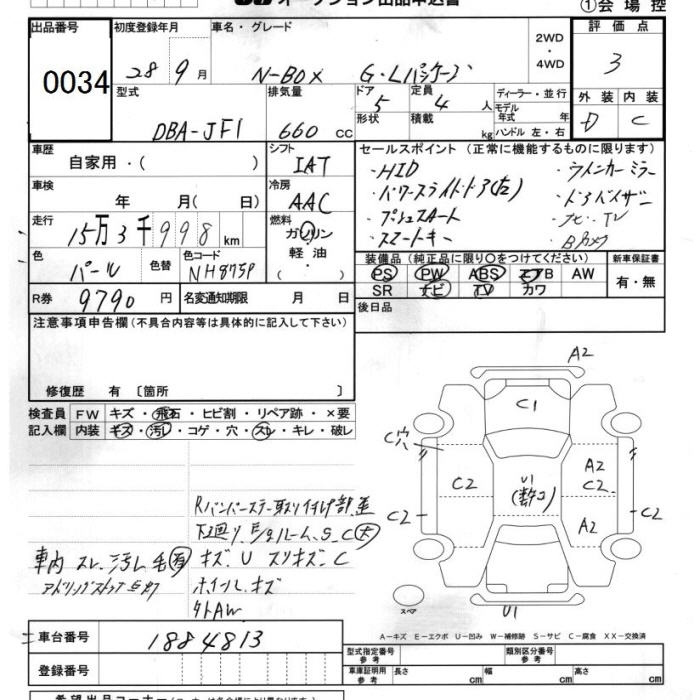 オークション出品申込書
①会場控
出品番号 初度登録年月 車名・グレード 2WD・4WD 評価点
0034 28年 9月 N-BOX G・Lパッケージ 3
型式 排気量 ドア 定員 ディーラー・並行 外装 内装
DBA-JF1 660 cc 5 4人 モデル年式 年 D C
形状 積載 kg ハンドル 左・右
車歴 シフト セールスポイント (正常に機能するものに限ります)
自家用・( ) IAT ・HID ・ウインカーミラー
車検 冷房 ・パワースライドドア(左) ・ドアバイザー
年 月(日) AAC ・プッシュスタート ・ナビ・TV
走行 燃料 ・スマートキー ・Bカメラ
15万3千998km ガソリン・軽油・
色 色替 色コード 装備品 (純正品に限り○をつけてください) 新車保証書
パール NH875P PS PW ABS エアB AW 有・無
R券 9790円 名変通知期限 月 日 SR ナビ TV カワ
後日品
注意事項申告欄 (不具合内容等は具体的に記入して下さい)
修復歴 有 〔箇所 〕
検査員 FW キズ・飛石・ヒビ割・リペア跡・×要
記入欄 内装 キズ・汚レ・コゲ・穴・スレ・キレ・破レ
A2
C1
C穴
C2
U1
A2
C2
C2
A2
C2
U1
スペア
Rバンパーステー取り付け部歪
下廻り、E/gルーム、S、C(大)
車内 スレ、汚レ 毛(有) キズ・U スリキズ・C
ホイールキズ
外AW
A-キズ E-エクボ U-凹み W-補修跡 S-サビ C-腐食 XX-交換済
車台番号 1884813
登録番号
型式指定番号 参考 類別区分番号 参考
車庫証明用 参考 長さ cm 幅 cm 高さ cm